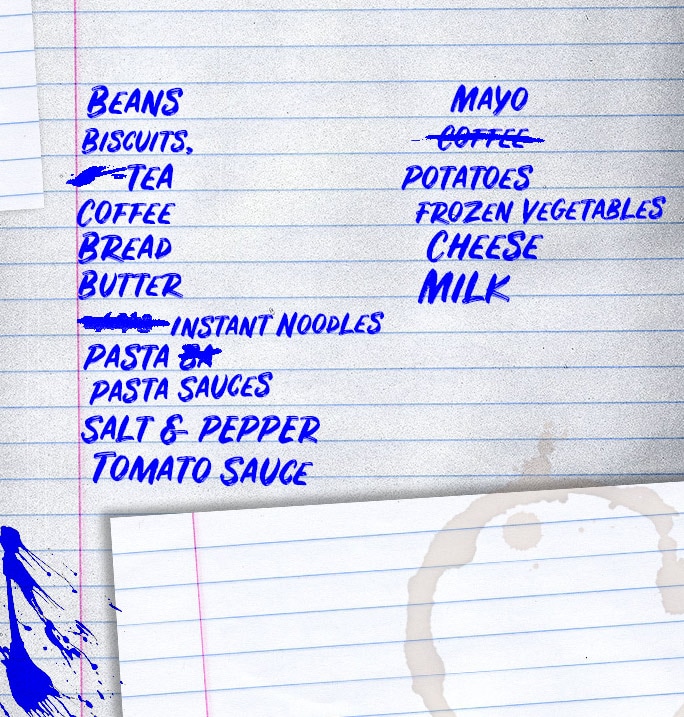 BEANS
BISCUITS,
TEA
COFFEE
BREAD
BUTTER
INSTANT NOODLES
PASTA
PASTA SAUCES
SALT & PEPPER
TOMATO SAUCE
MAYO
COFFEE
POTATOES
FROZEN VEGETABLES
CHEESE
MILK